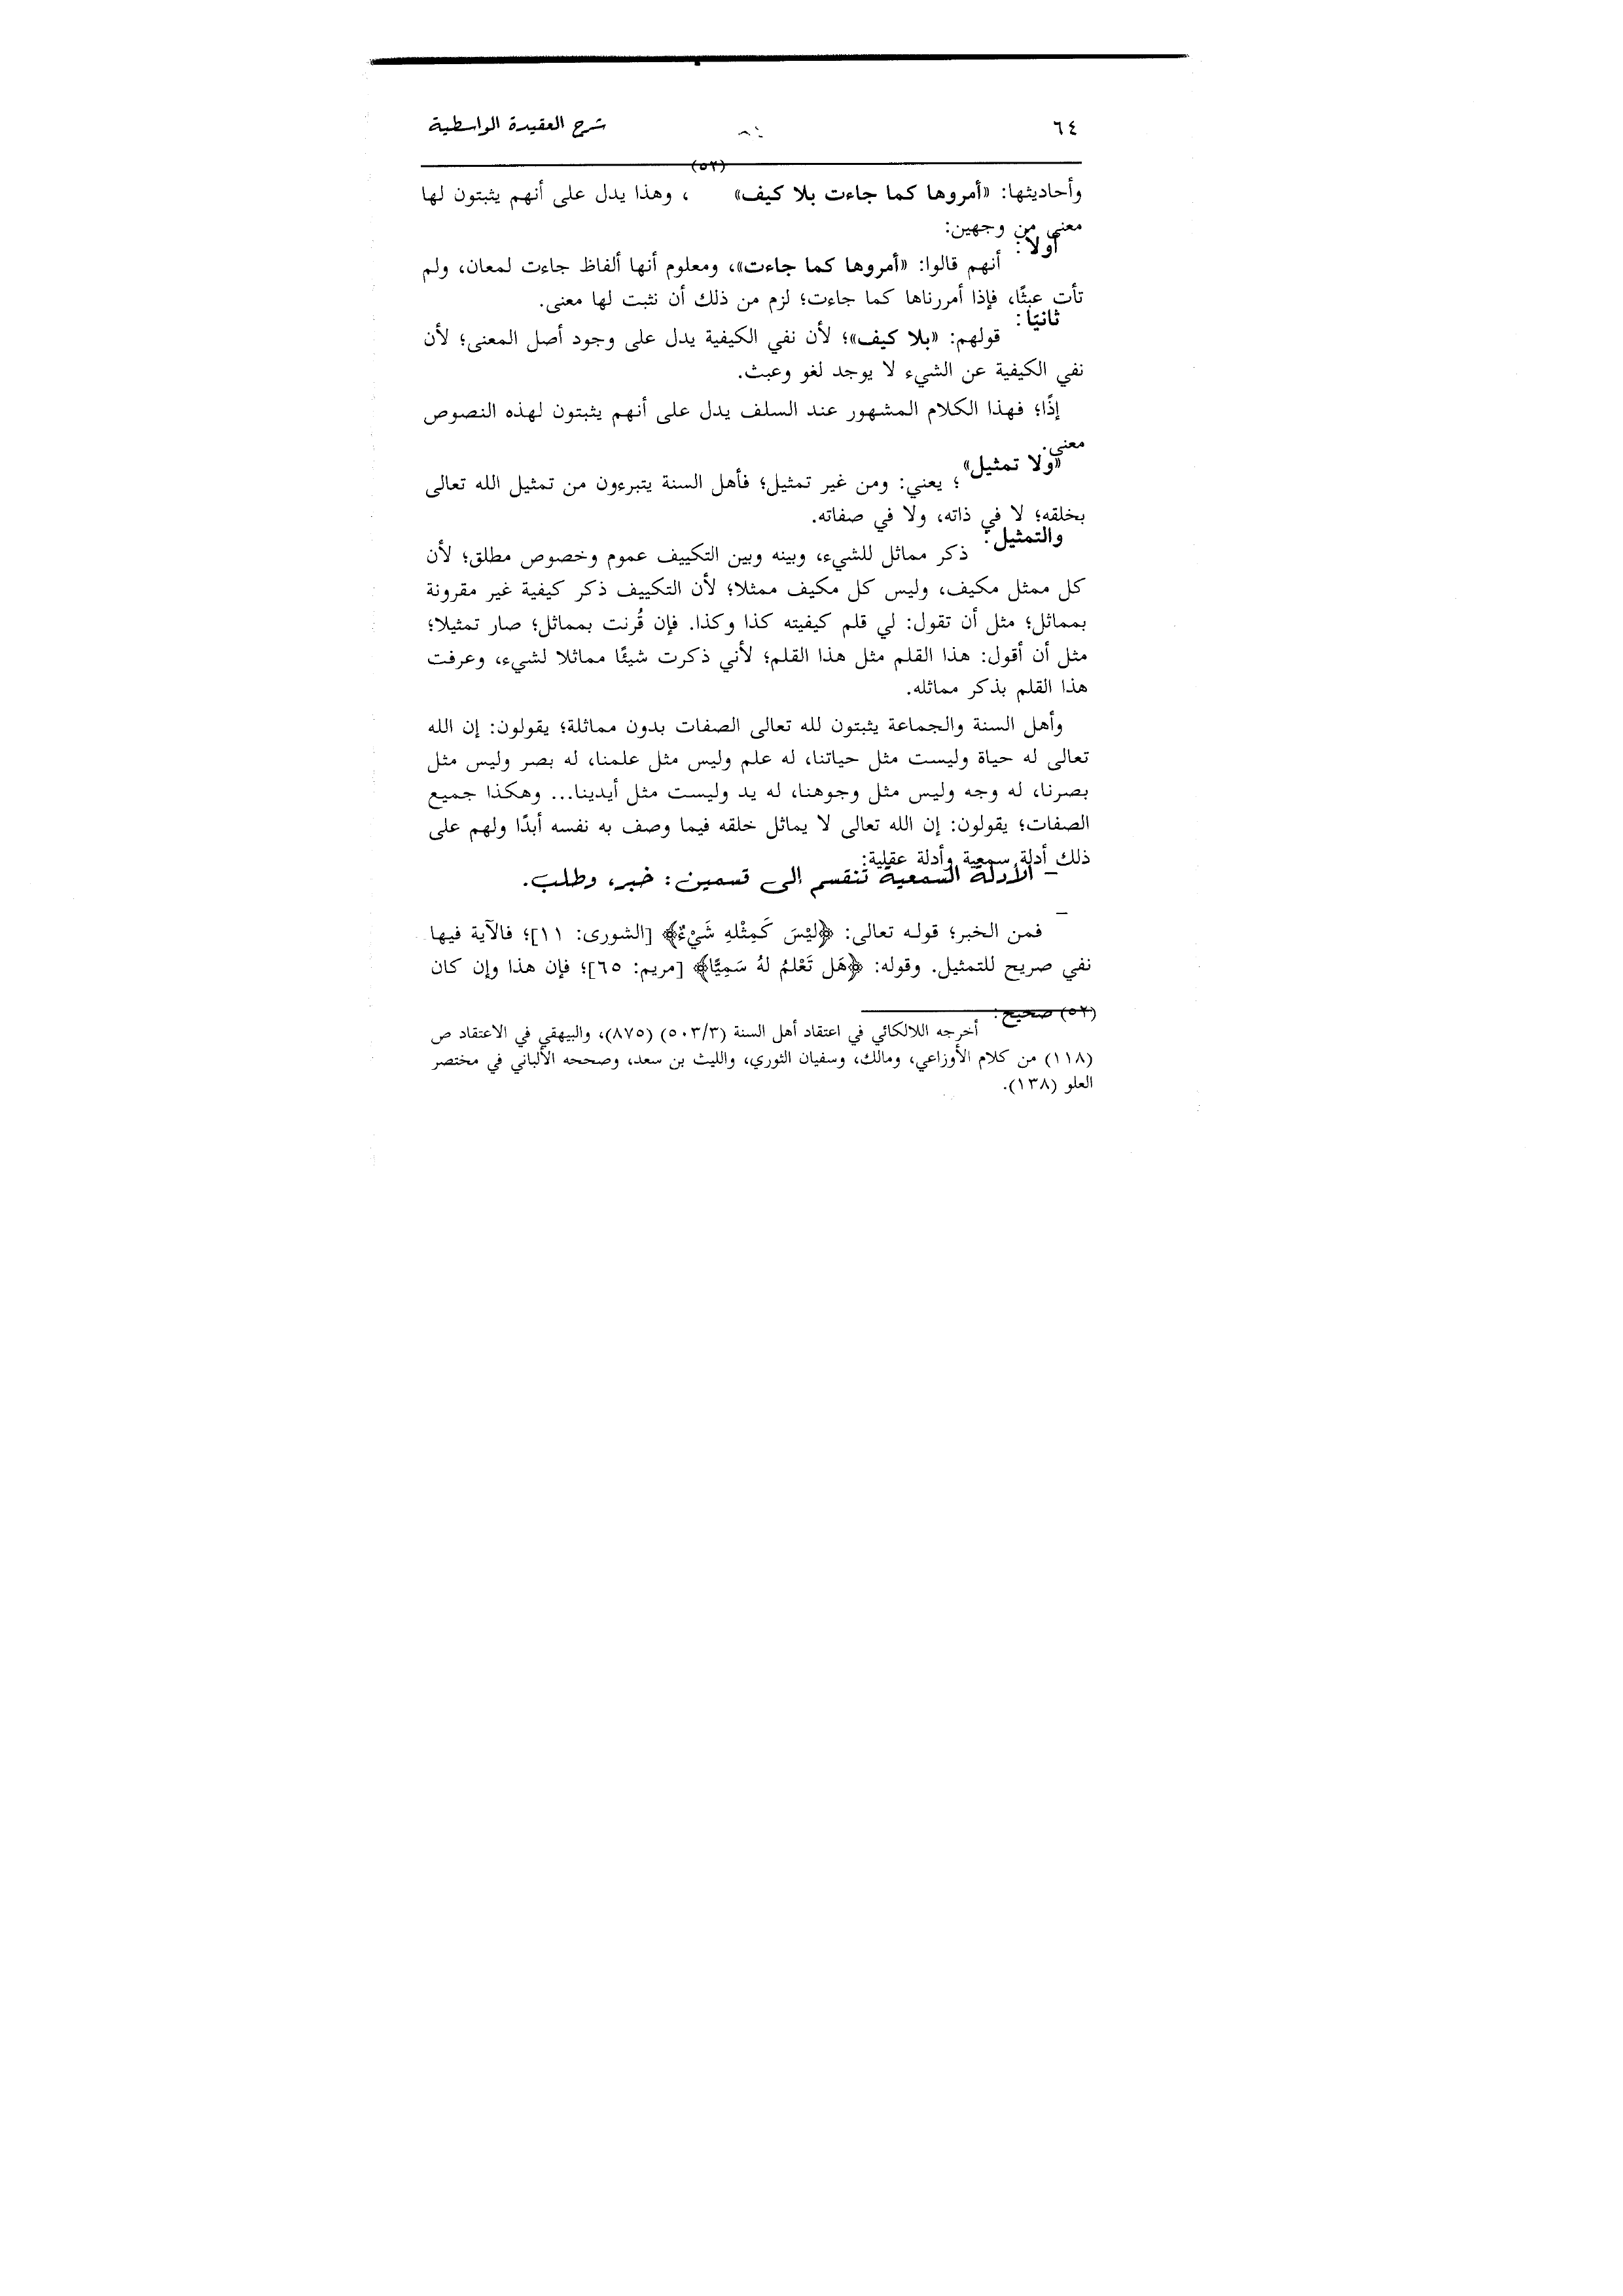 ٦٤ شرح العقيدة الواسطية
وأحاديثها: «أمروها كما جاءت بلا كيف» (٥٢)، وهذا يدل على أنهم يثبتون لها
معنى من وجهين:
أولاً: أنهم قالوا: «أمروها كما جاءت»، ومعلوم أنها ألفاظ جاءت لمعان، ولم
تأت عبثًا، فإذا أمررناها كما جاءت؛ لزم من ذلك أن نثبت لها معنى.
ثانيًا: قولهم: «بلا كيف»؛ لأن نفي الكيفية يدل على وجود أصل المعنى؛ لأن
نفي الكيفية عن الشيء لا يوجد لغو وعبث.
إذًا؛ فهذا الكلام المشهور عند السلف يدل على أنهم يثبتون لهذه النصوص
معنى.
«ولا تمثيل»؛ يعني: ومن غير تمثيل؛ فأهل السنة يتبرءون من تمثيل الله تعالى
بخلقه؛ لا في ذاته، ولا في صفاته.
والتمثيل: ذكر مماثل للشيء، وبينه وبين التكييف عموم وخصوص مطلق؛ لأن
كل ممثل مكيف، وليس كل مكيف ممثلا؛ لأن التكييف ذكر كيفية غير مقرونة
بمماثل؛ مثل أن تقول: لي قلم كيفيته كذا وكذا. فإن قُرنت بمماثل؛ صار تمثيلا؛
مثل أن أقول: هذا القلم مثل هذا القلم؛ لأني ذكرت شيئًا مماثلا لشيء، وعرفت
هذا القلم بذكر مماثله.
وأهل السنة والجماعة يثبتون لله تعالى الصفات بدون مماثلة؛ يقولون: إن الله
تعالى له حياة وليست مثل حياتنا، له علم وليس مثل علمنا، له بصر وليس مثل
بصرنا، له وجه وليس مثل وجوهنا، له يد وليست مثل أيدينا... وهكذا جميع
الصفات؛ يقولون: إن الله تعالى لا يماثل خلقه فيما وصف به نفسه أبدًا ولهم على
ذلك أدلة سمعية وأدلة عقلية:
– الأدلة السمعية تنقسم إلى قسمين: خبر، وطلب.
– فمن الخبر؛ قوله تعالى: ﴿ليْسَ كَمِثْلهِ شَيْءٌ﴾ [الشورى: ١١]؛ فالآية فيها
نفي صريح للتمثيل. وقوله: ﴿هَل تَعْلمُ لهُ سَمِيًّا﴾ [مريم: ٦٥]؛ فإن هذا وإن كان
(٥٢) صحيح: أخرجه اللالكائي في اعتقاد أهل السنة (٥٠٣/٣) (٨٧٥)، والبيهقي في الاعتقاد ص
(١١٨) من كلام الأوزاعي، ومالك، وسفيان الثوري، والليث بن سعد، وصححه الألباني في مختصر
العلو (١٣٨).